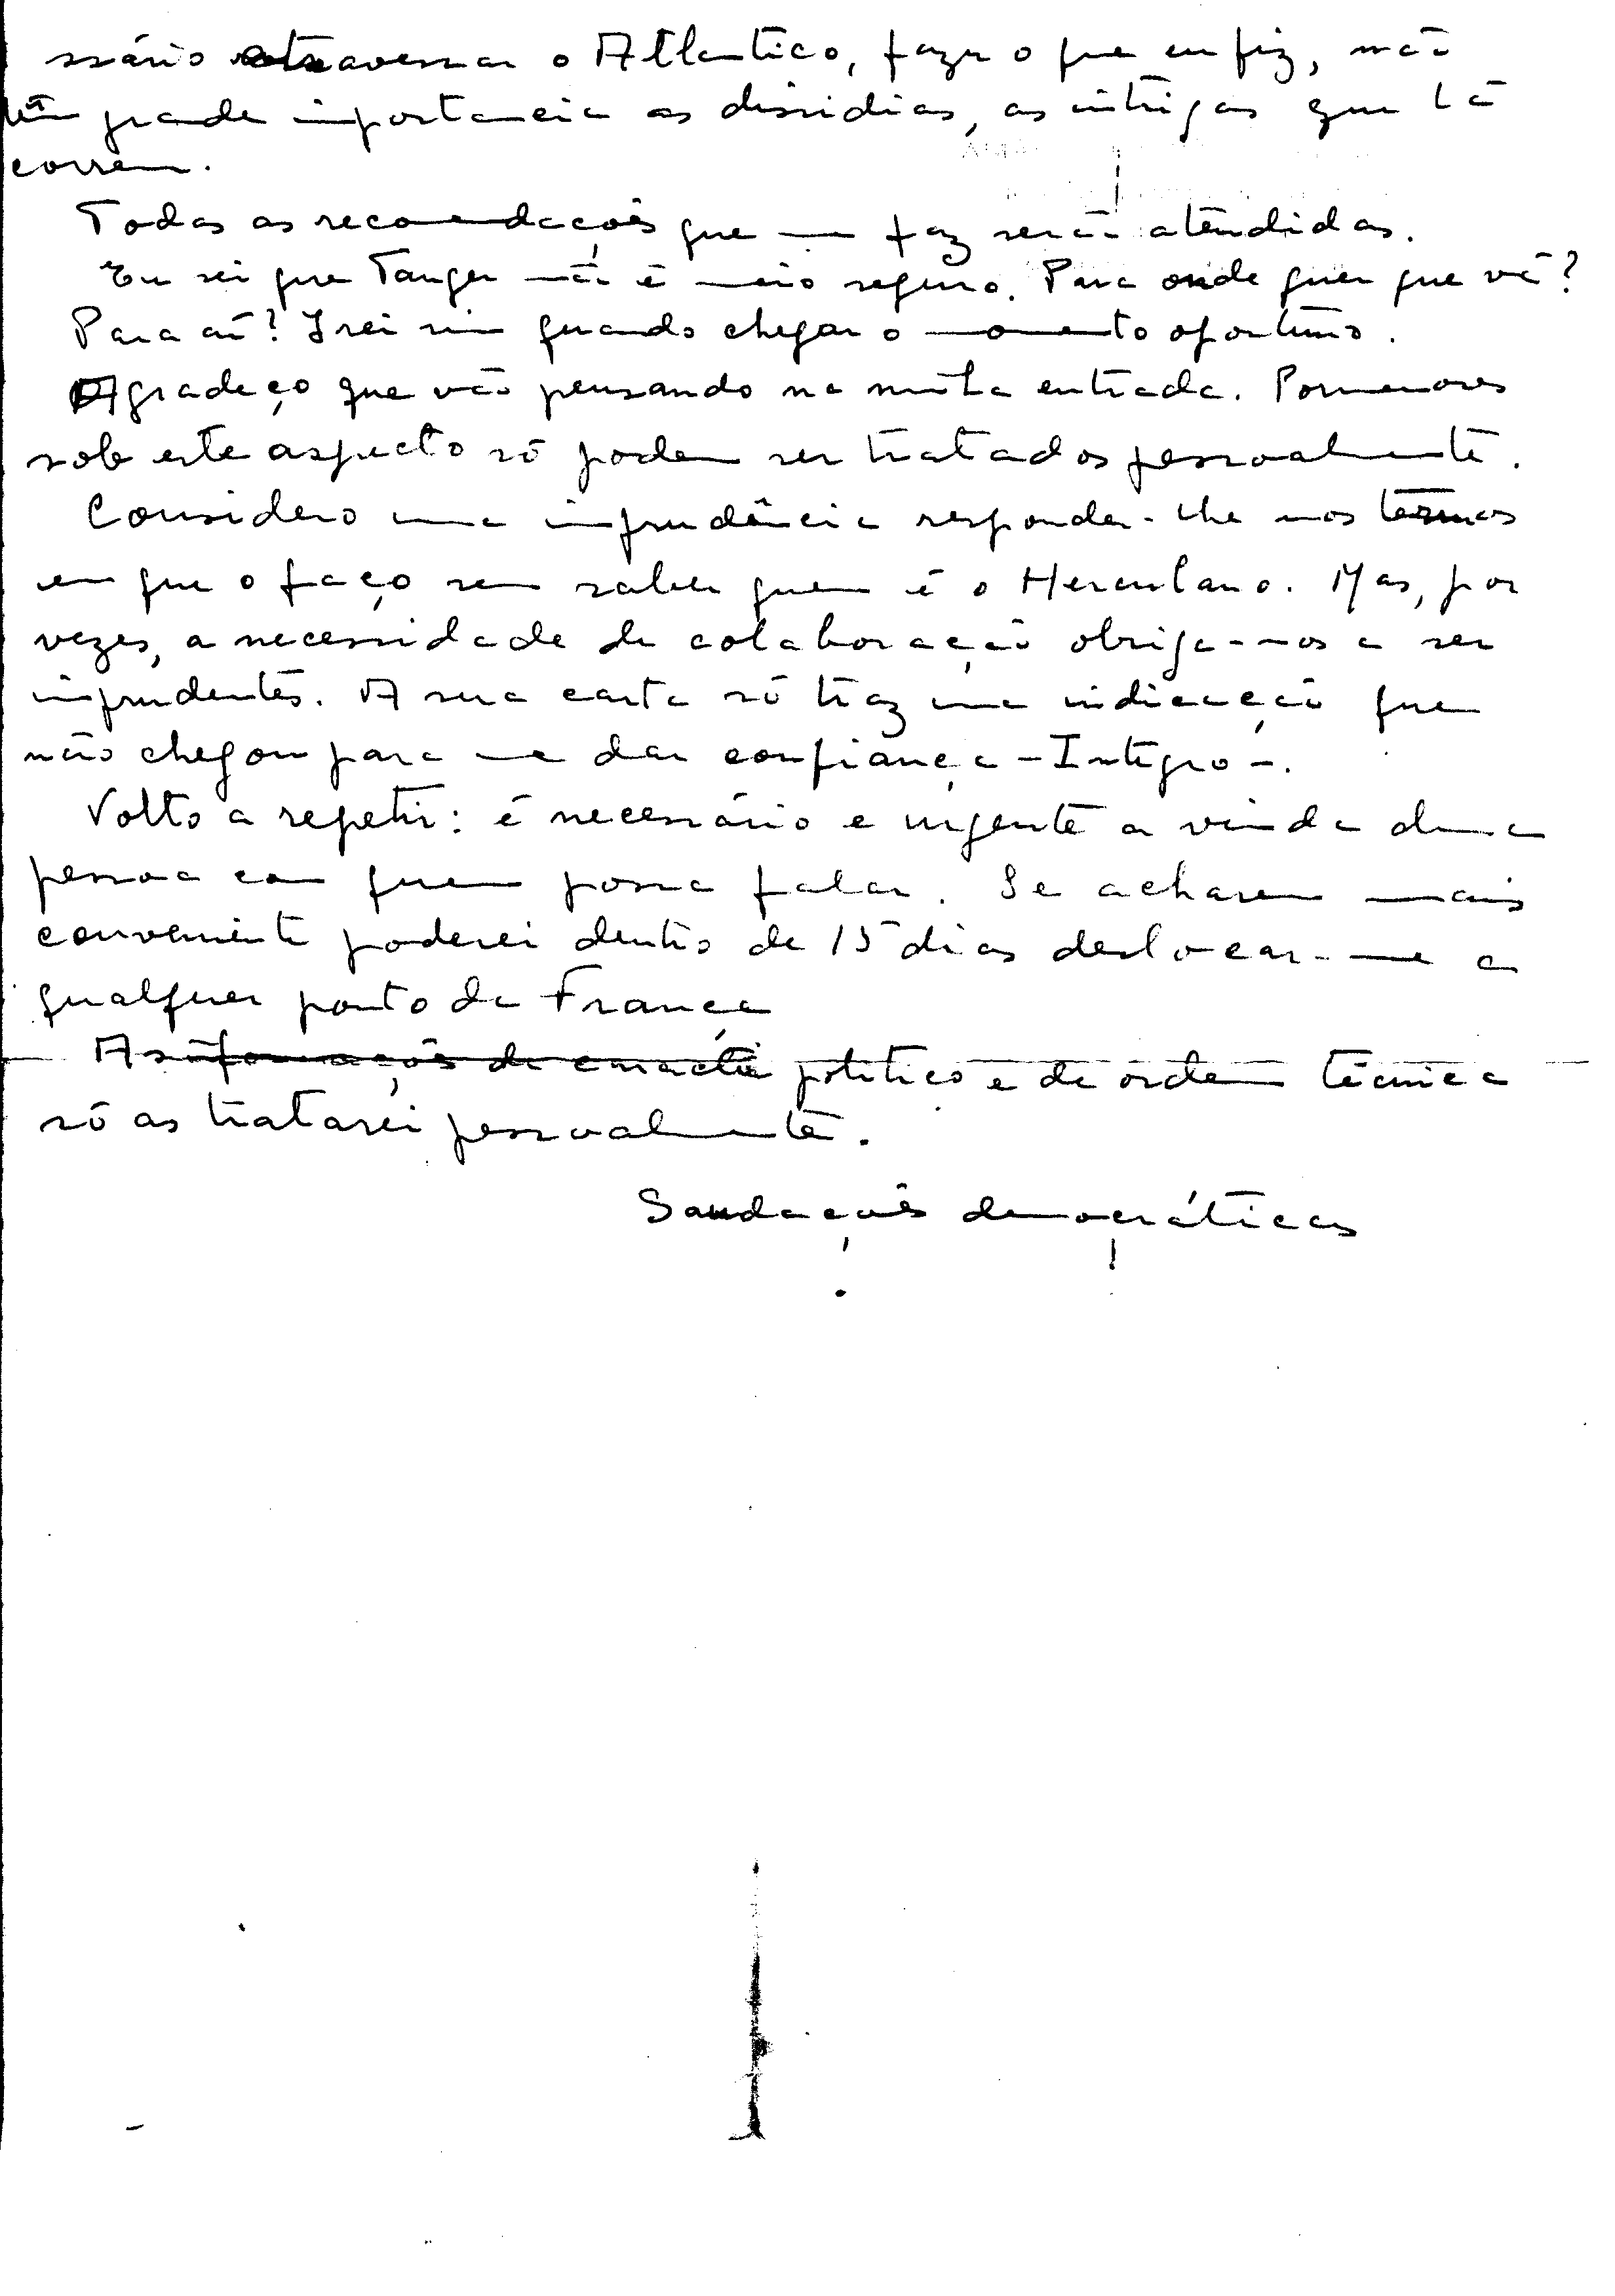 ssário atravessar o Atlantico, fazer o que eu fiz, não
têm grande importancia as dissidias, as intrigas que lá
correm.
Todas as recomendações que me faz serão atendidas.
Eu sei que Tanger não é meio seguro. Para onde quer que vá?
Para aí? Irei sim quando chegar o momento oportuno.
Agradeço que vão pensando na minha entrada. Pormenores
sob este aspecto só podem ser tratados pessoalmente.
Considero uma imprudência responder-lhe nos termos
em que o faço sem saber quem é o Herculano. Mas, por
vezes, a necessidade de colaboração obriga-nos a ser
imprudentes. A sua carta só traz uma indicação que
não chegou para me dar confiança - Integro -.
Volto a repetir: é necessário e urgente a vinda duma
pessoa com quem possa falar. Se acharem mais
conveniente poderei dentro de 15 dias deslocar-me a
qualquer ponto da França
As informações de caracter politico e de ordem técnica
só as tratarei pessoalmente.
Saudações democráticas